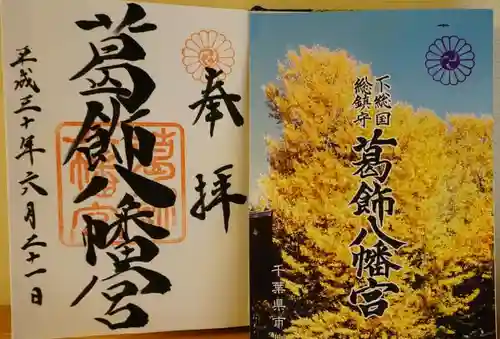 奉拝
葛飾八幡宮
平成三十年六月二十一日
葛飾八幡宮
下総国
総鎮守
葛飾八幡宮
千葉県市